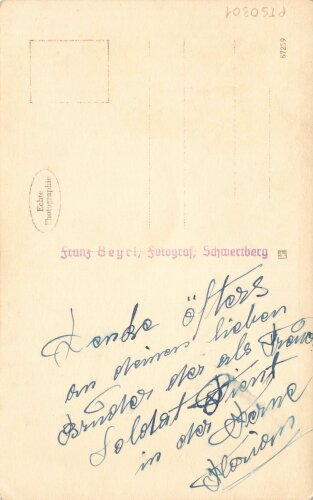 PTS0301
67259
Echte
Photographie
Franz Beyrl, Fotograf, Schwertberg
Denke öfters
an deinen lieben
Bruder der als
Soldat Dient
in der Ferne
Florian